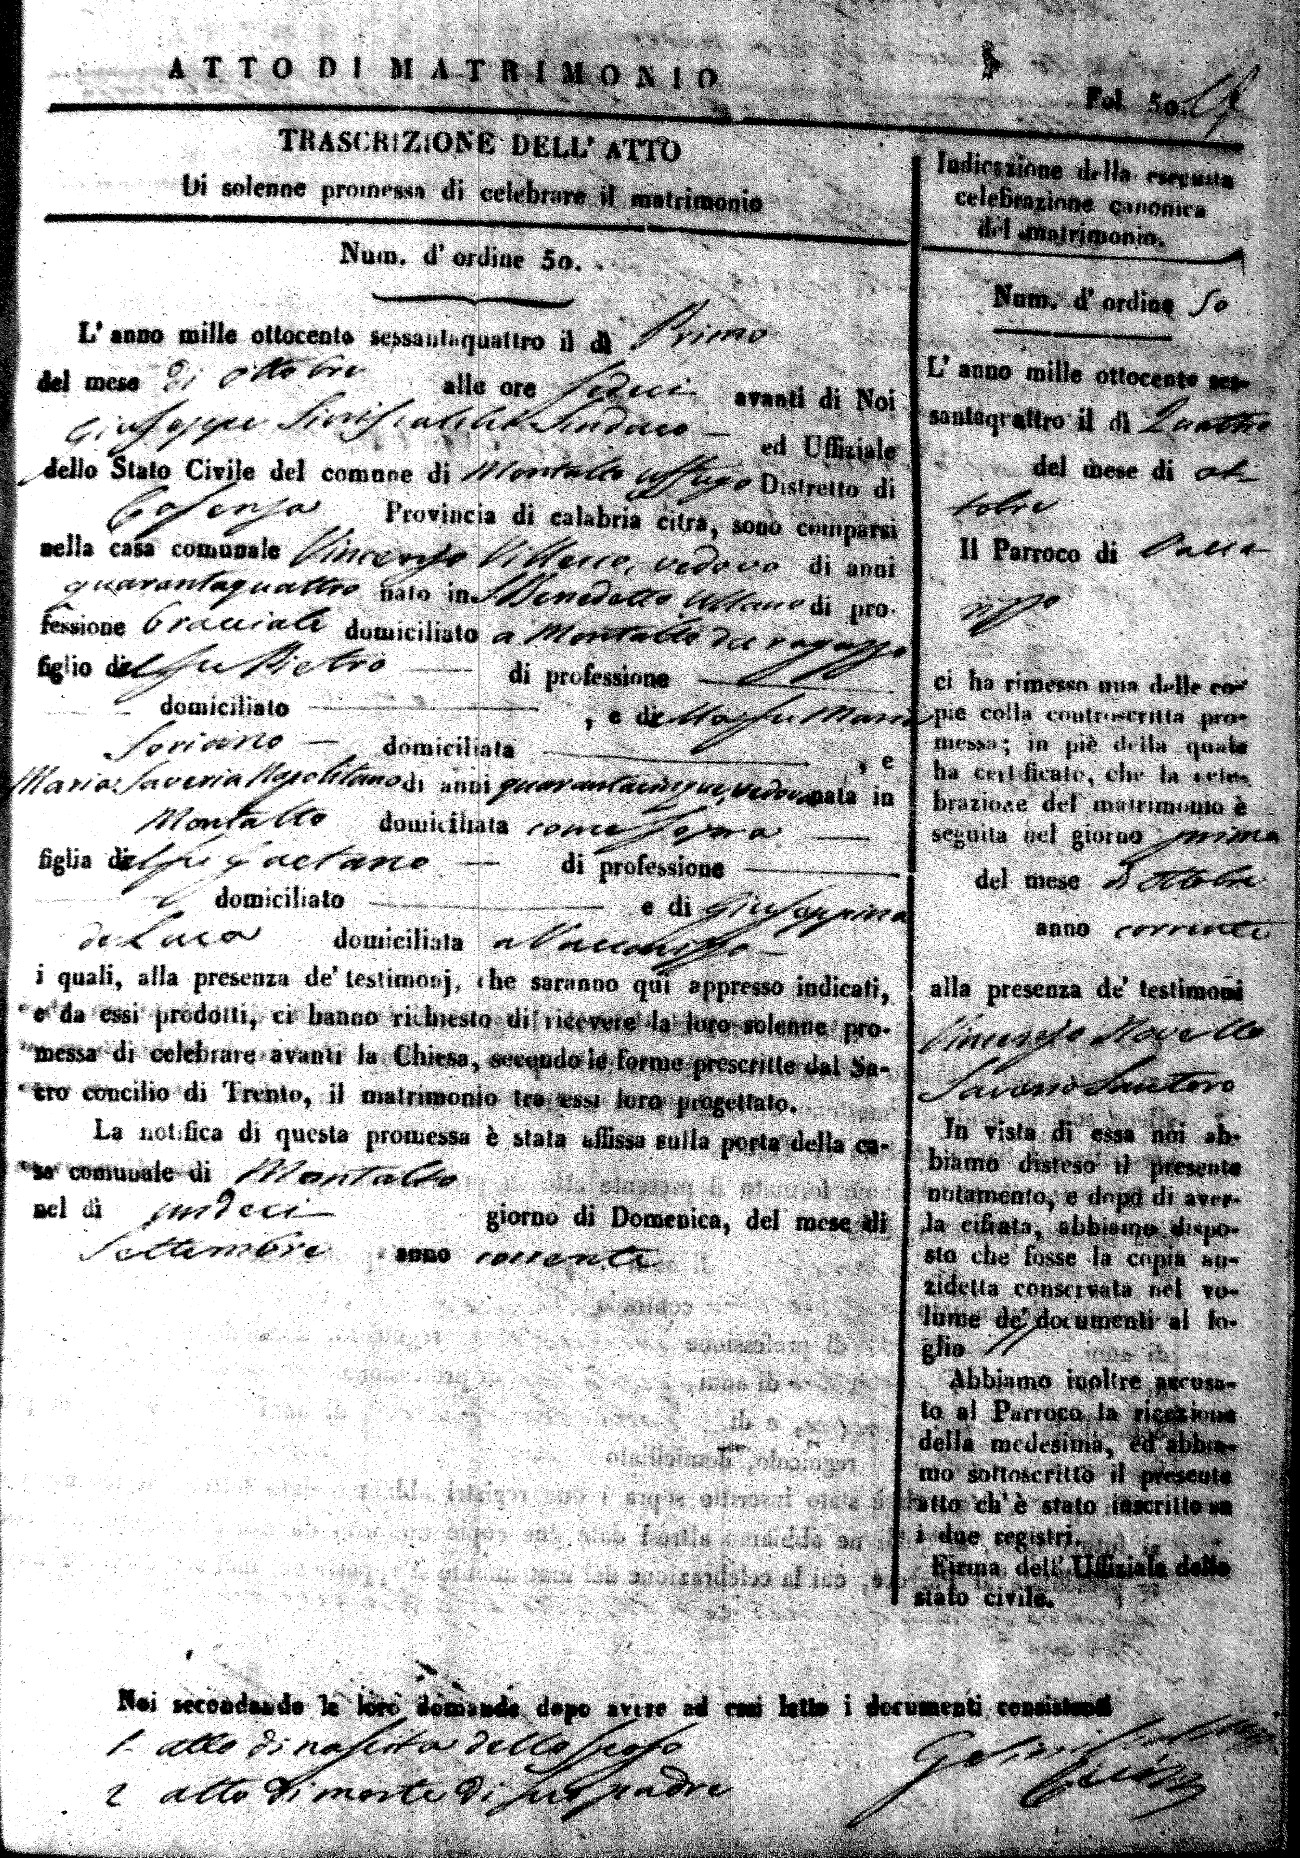 ATTO DI MATRIMONIO
Fol. 50.
TRASCRIZIONE DELL' ATTO
Di solenne promessa di celebrare il matrimonio
Num. d' ordine 50.
L' anno mille ottocento sessantaquattro il dì Primo
del mese di ottobre alle ore sedici avanti di Noi
Giuseppe Sindaco — ed Uffiziale
dello Stato Civile del comune di Montalto Uffugo Distretto di
Cosenza Provincia di calabria citra, sono comparsi
nella casa comunale Vincenzo Villecco, vedovo di anni
quarantaquattro nato in S Benedetto Ullano di pro-
fessione bracciale domiciliato a Montalto
figlio del fu Pietro — di professione —
domiciliato — , e della fu Maria
Soriano — domiciliata — , e
Maria Saveria Napolitano di anni quarantacinque, vedova nata in
Montalto domiciliata come sopra —
figlia del fu Gaetano — di professione —
domiciliato — e di Giuseppina
de Luca domiciliata a Vaccarizzo —
i quali, alla presenza de' testimonj, che saranno qui appresso indicati,
e da essi prodotti, ci hanno richiesto di ricevere la loro solenne pro-
messa di celebrare avanti la Chiesa, secondo le forme prescritte dal Sa-
cro concilio di Trento, il matrimonio tra essi loro progettato.
La notifica di questa promessa è stata affissa sulla porta della ca-
sa comunale di Montalto
nel dì undeci giorno di Domenica, del mese di
Settembre anno corrente
Indicazione della eseguita
celebrazione canonica
del matrimonio.
Num. d' ordine 50
L' anno mille ottocento ses-
santaquattro il dì Quattro
del mese di ot-
tobre
Il Parroco di Vacca
rizzo
ci ha rimesso una delle co-
pie colla controscritta pro-
messa; in piè della quale
ha certificato, che la cele-
brazione del matrimonio è
seguita nel giorno primo
del mese di Ottobre
anno corrente
alla presenza de' testimoni
Vincenzo Novello
Saverio Santoro
In vista di essa noi ab-
biamo disteso il presente
notamento, e dopo di aver-
la cifrata, abbiamo dispo-
sto che fosse la copia an-
zidetta conservata nel vo-
lume de' documenti al fo-
glio 11
Abbiamo inoltre accusa-
to al Parroco la ricezione
della medesima, ed abbia-
mo sottoscritto il presente
atto ch' è stato inscritto su
i due registri.
Firma dell' Uffiziale dello
stato civile.
Noi secondando le loro domande dopo avere ad essi letto i documenti consistenti
1 atto di nascita dello sposo
2 atto di morte di suo padre